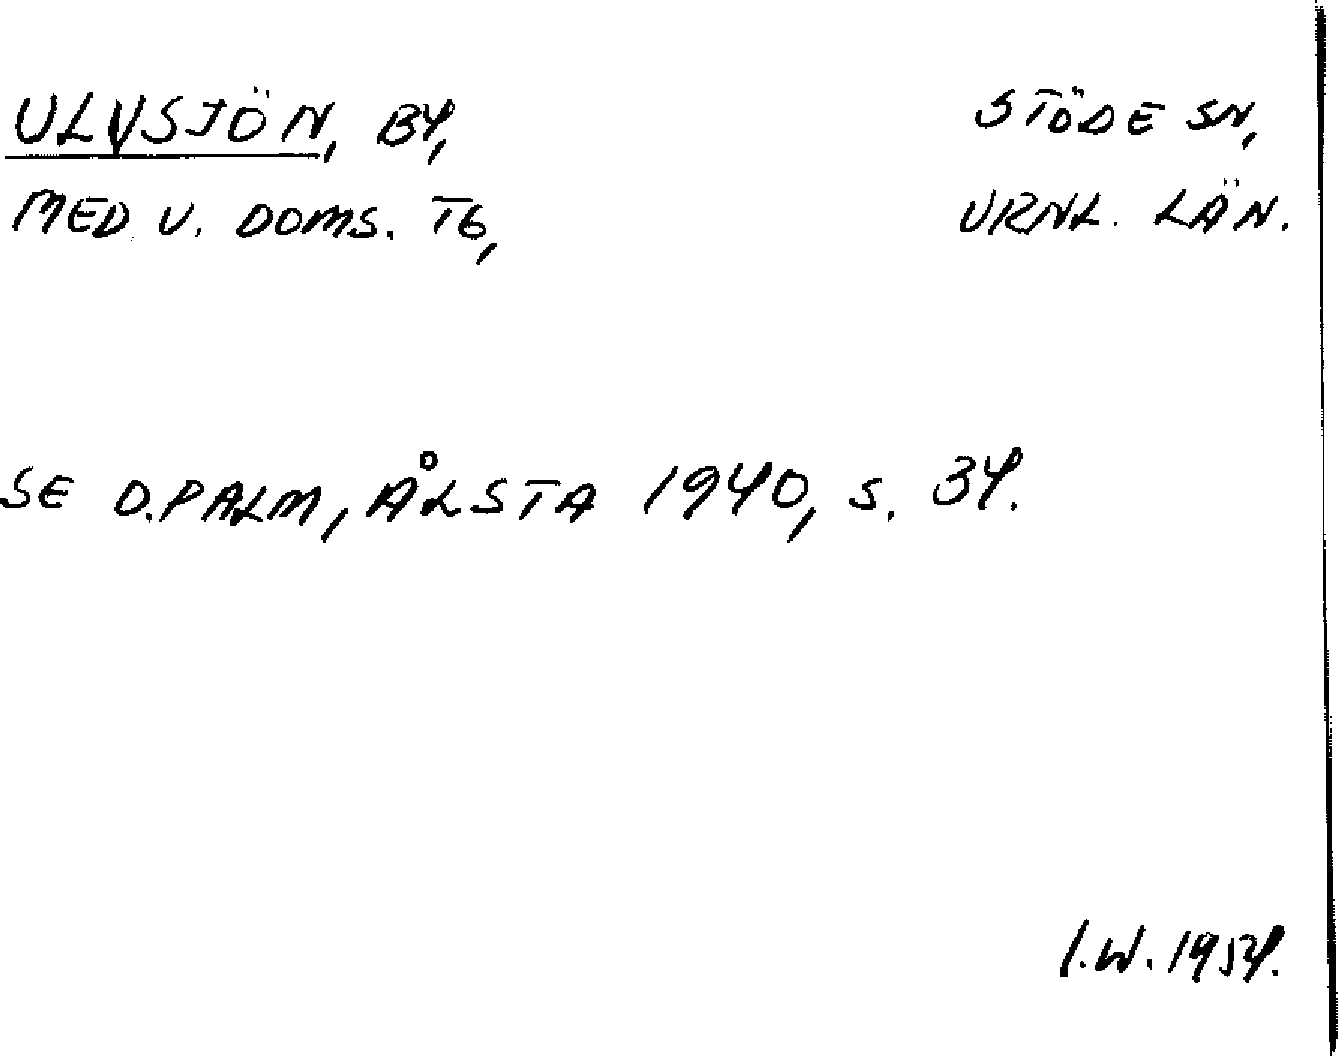 ULVSJÖN, BY,
STÖDE SN,
MED. V. DOMS. TG,
VRNL. LÄN.
SE D.PALM, ÅLSTA 1940, S. 34.
I.W. 1954.